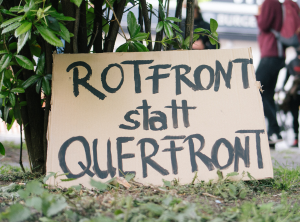 ROTFRONT
statt
QUERFRONT